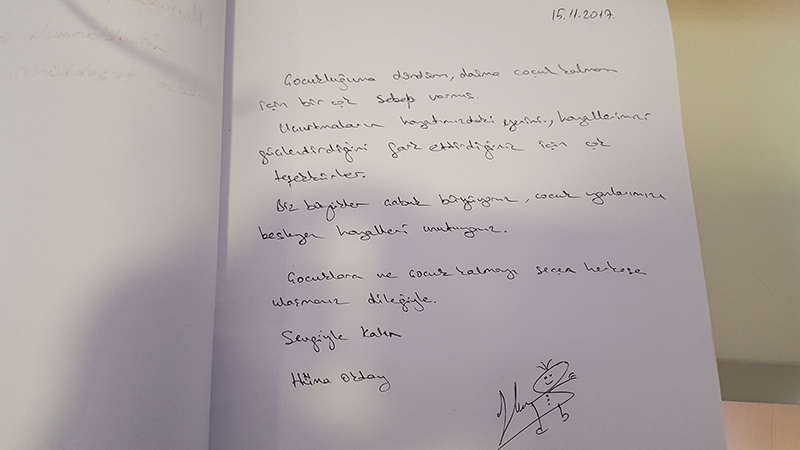 15.11.2017.
Çocukluğuma döndüm, daima çocuk kalmam
için bir çok sebep varmış.
Uçurtmaların hayatımızdaki yerini, hayallerimizi
güçlendirdiğini fark ettirdiğiniz için çok
teşekkürler.
Biz büyükler çabuk büyüyoruz, çocuk yanlarımızı
besleyen hayalleri unutuyoruz.
Çocuklara ve çocuk kalmayı seçen herkese
ulaşmanız dileğiyle.
Sevgiyle Kalın
Hüma Oktay